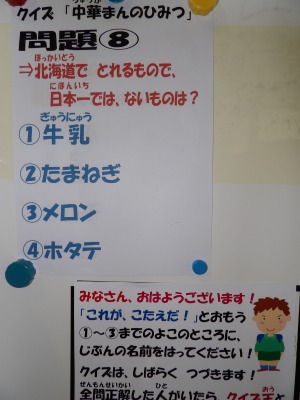 クイズ「中華まんのひみつ」
問題⑧
ほっかいどう
⇒北海道で とれるもので、
にほんいち
日本一では、ないものは？
ぎゅうにゅう
①牛乳
②たまねぎ
③メロン
④ホタテ
みなさん、おはようございます！
「これが、こたえだ！」とおもう
①～③までのよこのところに、
じぶんの名前をはってください！
クイズは、しばらく つづきます！
ぜんもんせいかい ひと おう
全問正解した人がいたら、クイズ王と